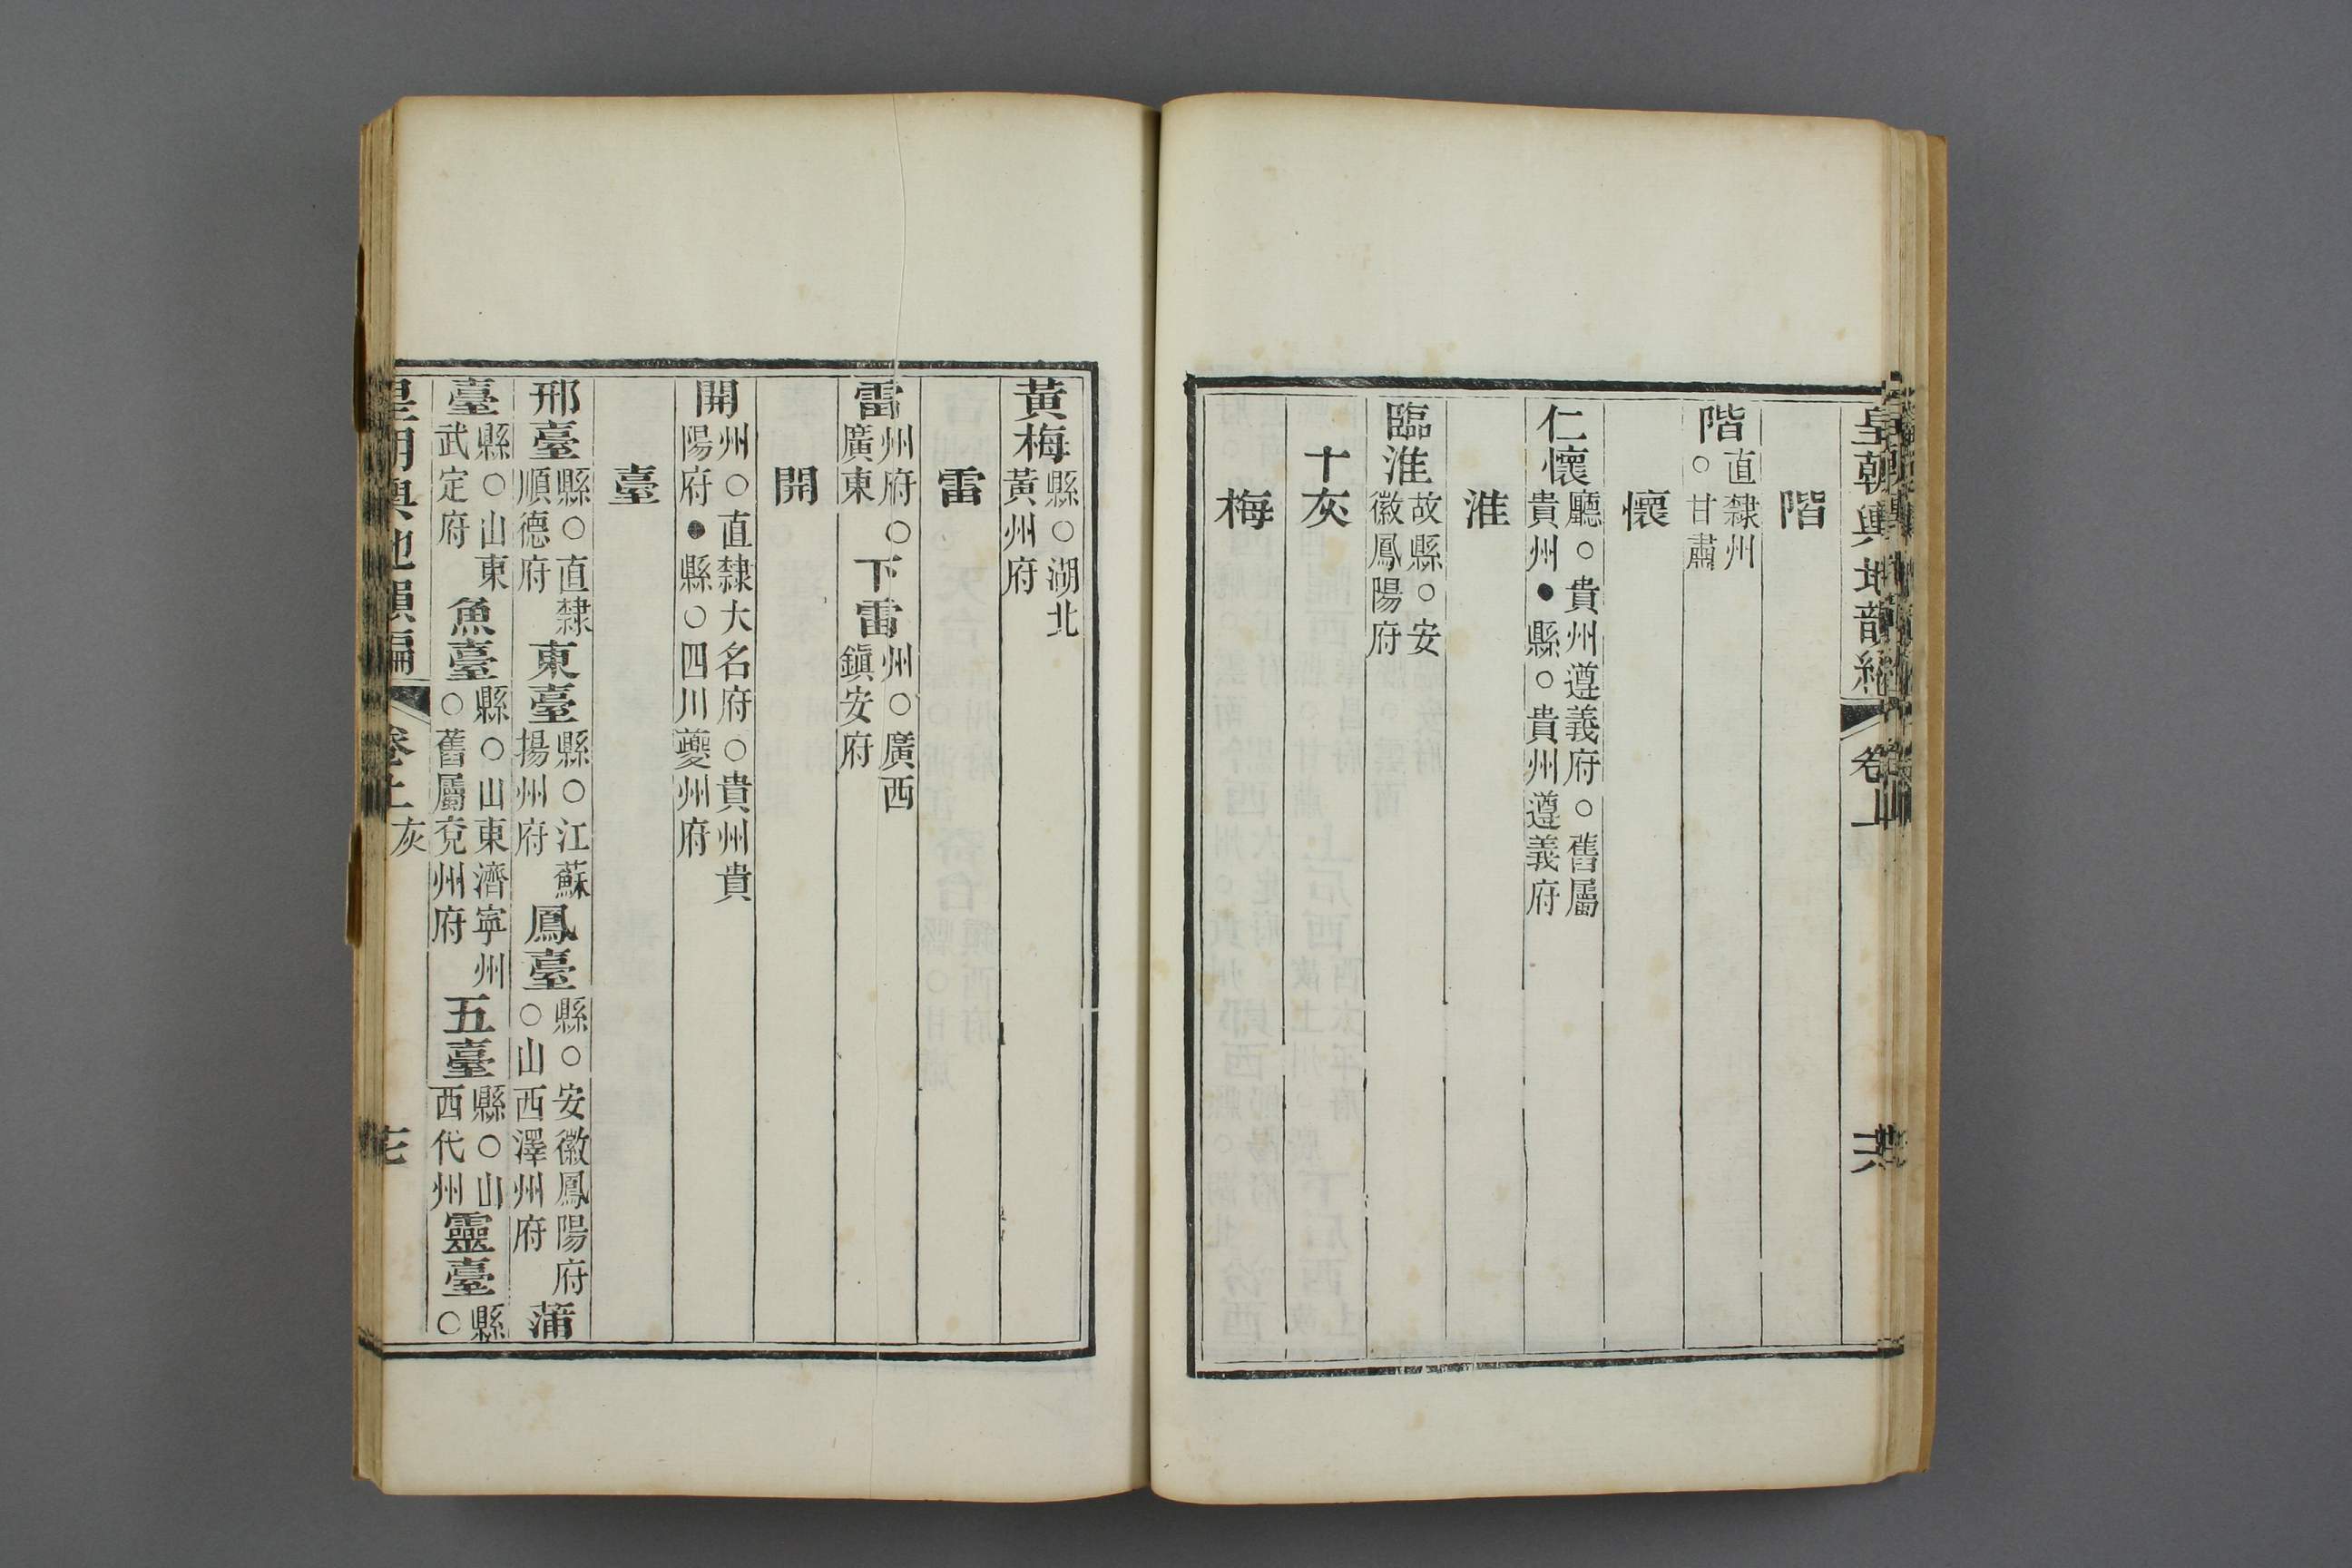 皇朝輿地韻編
卷上
階
階直隸州○甘肅
懷
仁懷廳○貴州遵義府○舊屬貴州●縣○貴州遵義府
淮
臨淮故縣○安徽鳳陽府
十灰
梅
黃梅縣○湖北黃州府
雷
雷州府○廣東 下雷州○廣西鎭安府
開
開州○直隸大名府○貴州貴陽府●縣○四川夔州府
臺
邢臺縣○直隸順德府 東臺縣○江蘇揚州府 鳳臺縣○安徽鳳陽府○山西澤州府 蒲
臺縣○山東武定府 魚臺縣○山東濟寧州○舊屬兗州府 五臺縣○山西代州 靈臺縣○
皇朝輿地韻編 卷上 灰